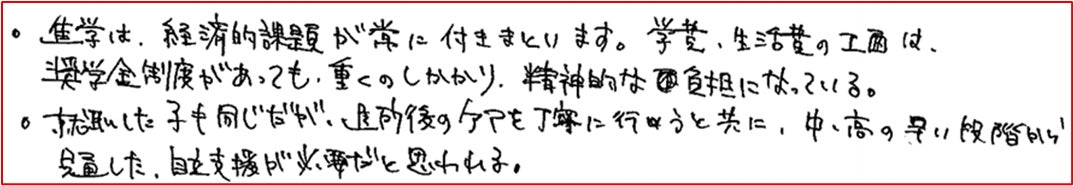 • 進学は、経済的課題が常に付きまといます。学費、生活費の工面は、
奨学金制度があっても、重くのしかかり、精神的な負担になっている。
• 就職した子も同じだが、退所後のケアを丁寧に行うと共に、中・高の早い段階から
見通した、自立支援が必要だと思われる。